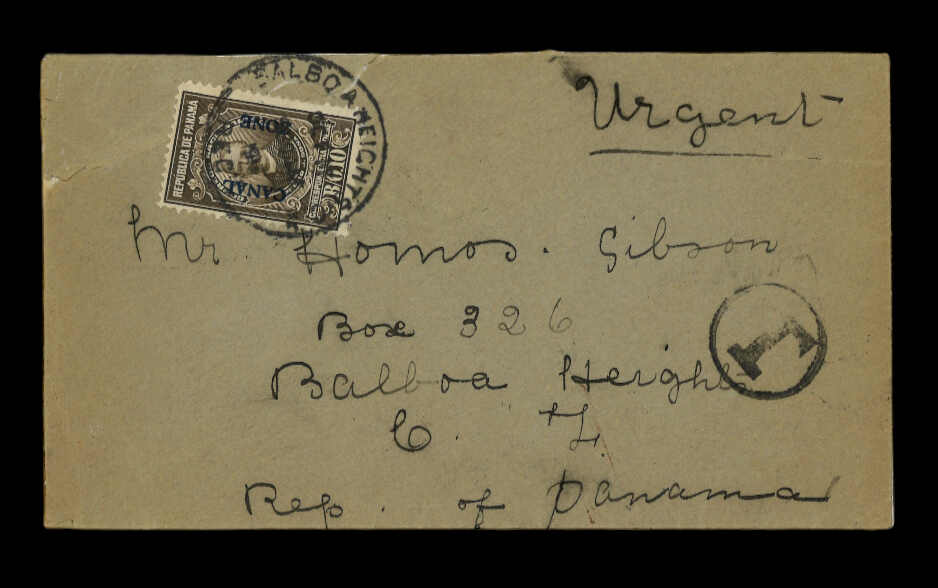 Urgent
BALBOA HEIGHTS
REPUBLICA DE PANAMA
CANAL
ZONE
Mr. Homos. Gibson
Box 326
Balboa Heights
C. Z.
Rep. of Panama
T